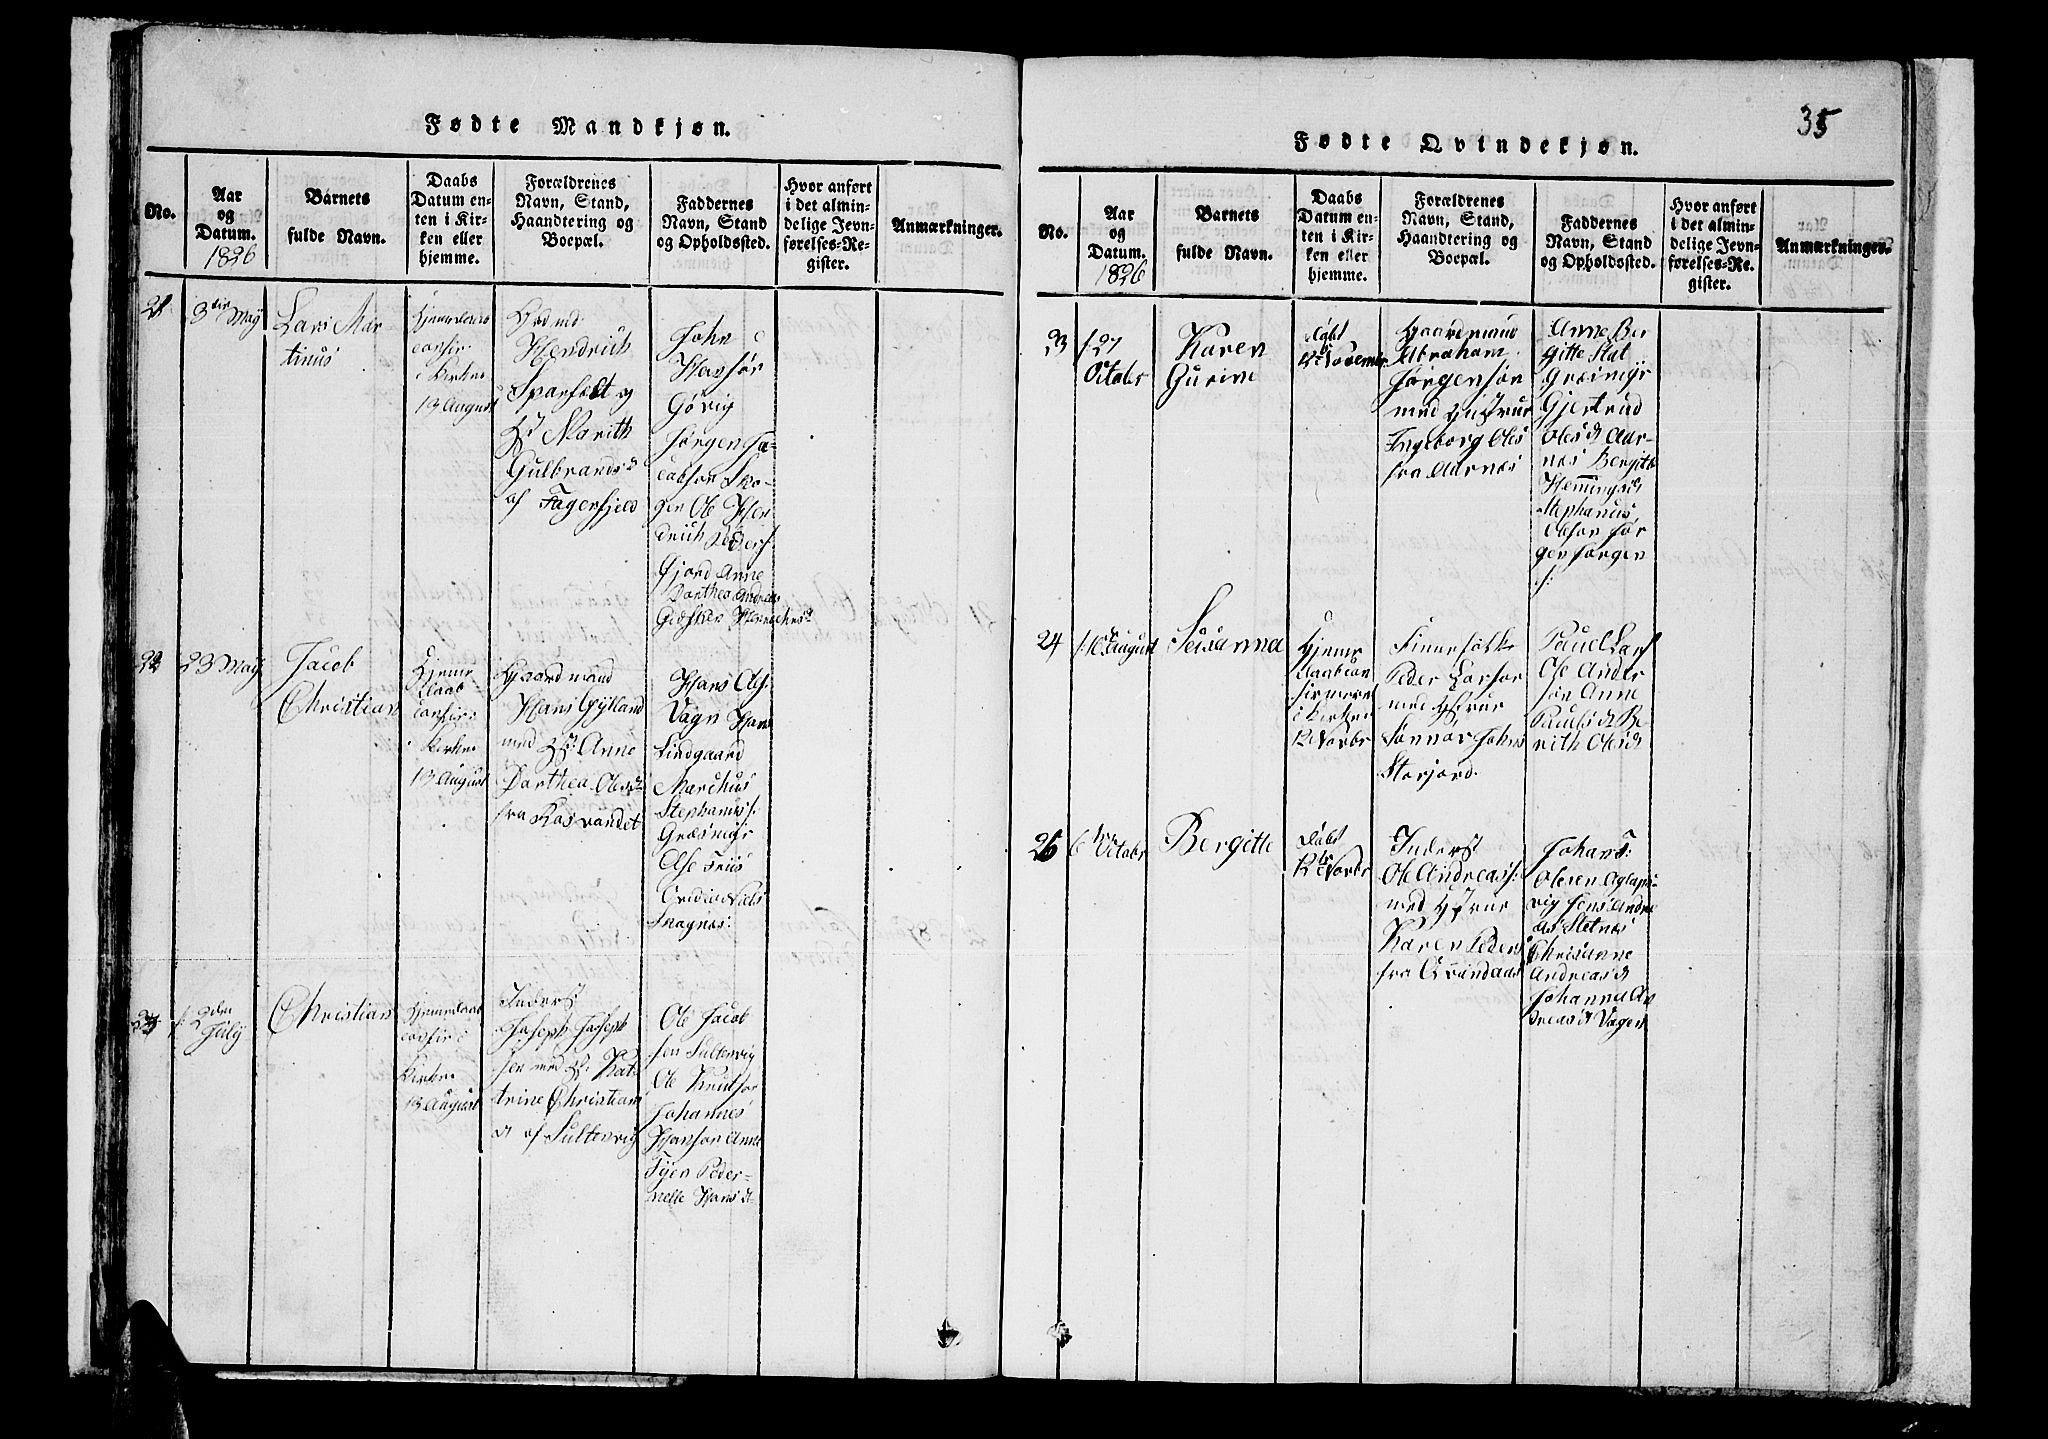 Fødte Mandkjøn.
No.
Aar
og
Datum.
1826
Barnets
fulde Navn.
Daabs
Datum en-
ten i Kir-
ken eller
hjemme.
Forældrenes
Navn, Stand,
Haandtering og
Boepæl.
Faddernes
Navn, Stand
og Opholdssted.
Hvor anført
i det almin-
delige Jevn-
førelses-Re-
gister.
Anmærkninger.
21
3die May
Lars Mar-
tinus
i Kirken
13 August
Hendrich
Sparfelt og
H. Marith
Gulbrandsd
af Fagerfjeld
John
Hansør
Gørig
Jørgen Ja-
cobson Sko-
gen Ole Hen-
drich Peders:
fjord Anne
Dorthea Andreas
22
23 May
Jacob
Christian
Hjemme
daab
confir:
i Kirken
13 August
Gaardmand
Hans Gylland
med H. Anne
Dorthea Olesd
fra Kosvandet
Hans Ols:
Vagn Hans
Lindgaard
Marchus
Stephanus:
Græsmyr
Else Friis
23
f: 2den
July
Christian
Hjemedaab
confir i
Kirken
13 August
Inderst
Joseph Joseph
sen med H. Kat-
trine Christians
d af Sultenvig
Ole Jacob
sen Sultenvig
Ole Knutsør
Johannes
Hansør Anne
Peder-
nelle Hans d
35
Fødte Qvindekjøn.
No.
Aar
og
Datum.
1826
Barnets
fulde Navn.
Daabs
Datum en-
ten i Kir-
ken eller
hjemme.
Forældrenes
Navn, Stand,
Haandtering og
Boepæl.
Faddernes
Navn, Stand
og Opholdssted.
Hvor anført
i det almin-
delige Jevn-
førelses-Re-
gister.
Anmærkninger.
23
f. 27
Octobr
Karen
Gurine
døbt
12 Novembr
Gaardmand
Abraham
Jørgensøn
med Hustrue
Ingeborg Oles
fra Aarnes
Anne Ber
gitte Stat
Græsmyr
Gjertrud
Oles d Aar-
nes Bergitte
Hemmings d
Stephanus
Olesøn Jør
gen Jørgen
s:
24
f: 10 August
Susanna
Hjemme
daab con
firmeret
i Kirken
12 Novbr
Finnefolk
Peder Larsøn
med Hstrue
Johns
Storjord.
Pauel Lars
Ole Ander
søn Anne
Pauls d Be
rith Oles d
25
6 Octobr
Bergitte
Døbt
12 Novbr
Inderst
Ole Andreas:
med Hstrue
Karen Peders
fra Qvindaas
Johans:
Olesen Aglaps-
vig Jens Andre
as Sletnes
Chrisanne
Andreas d
Johanna An
dreas d Vagen